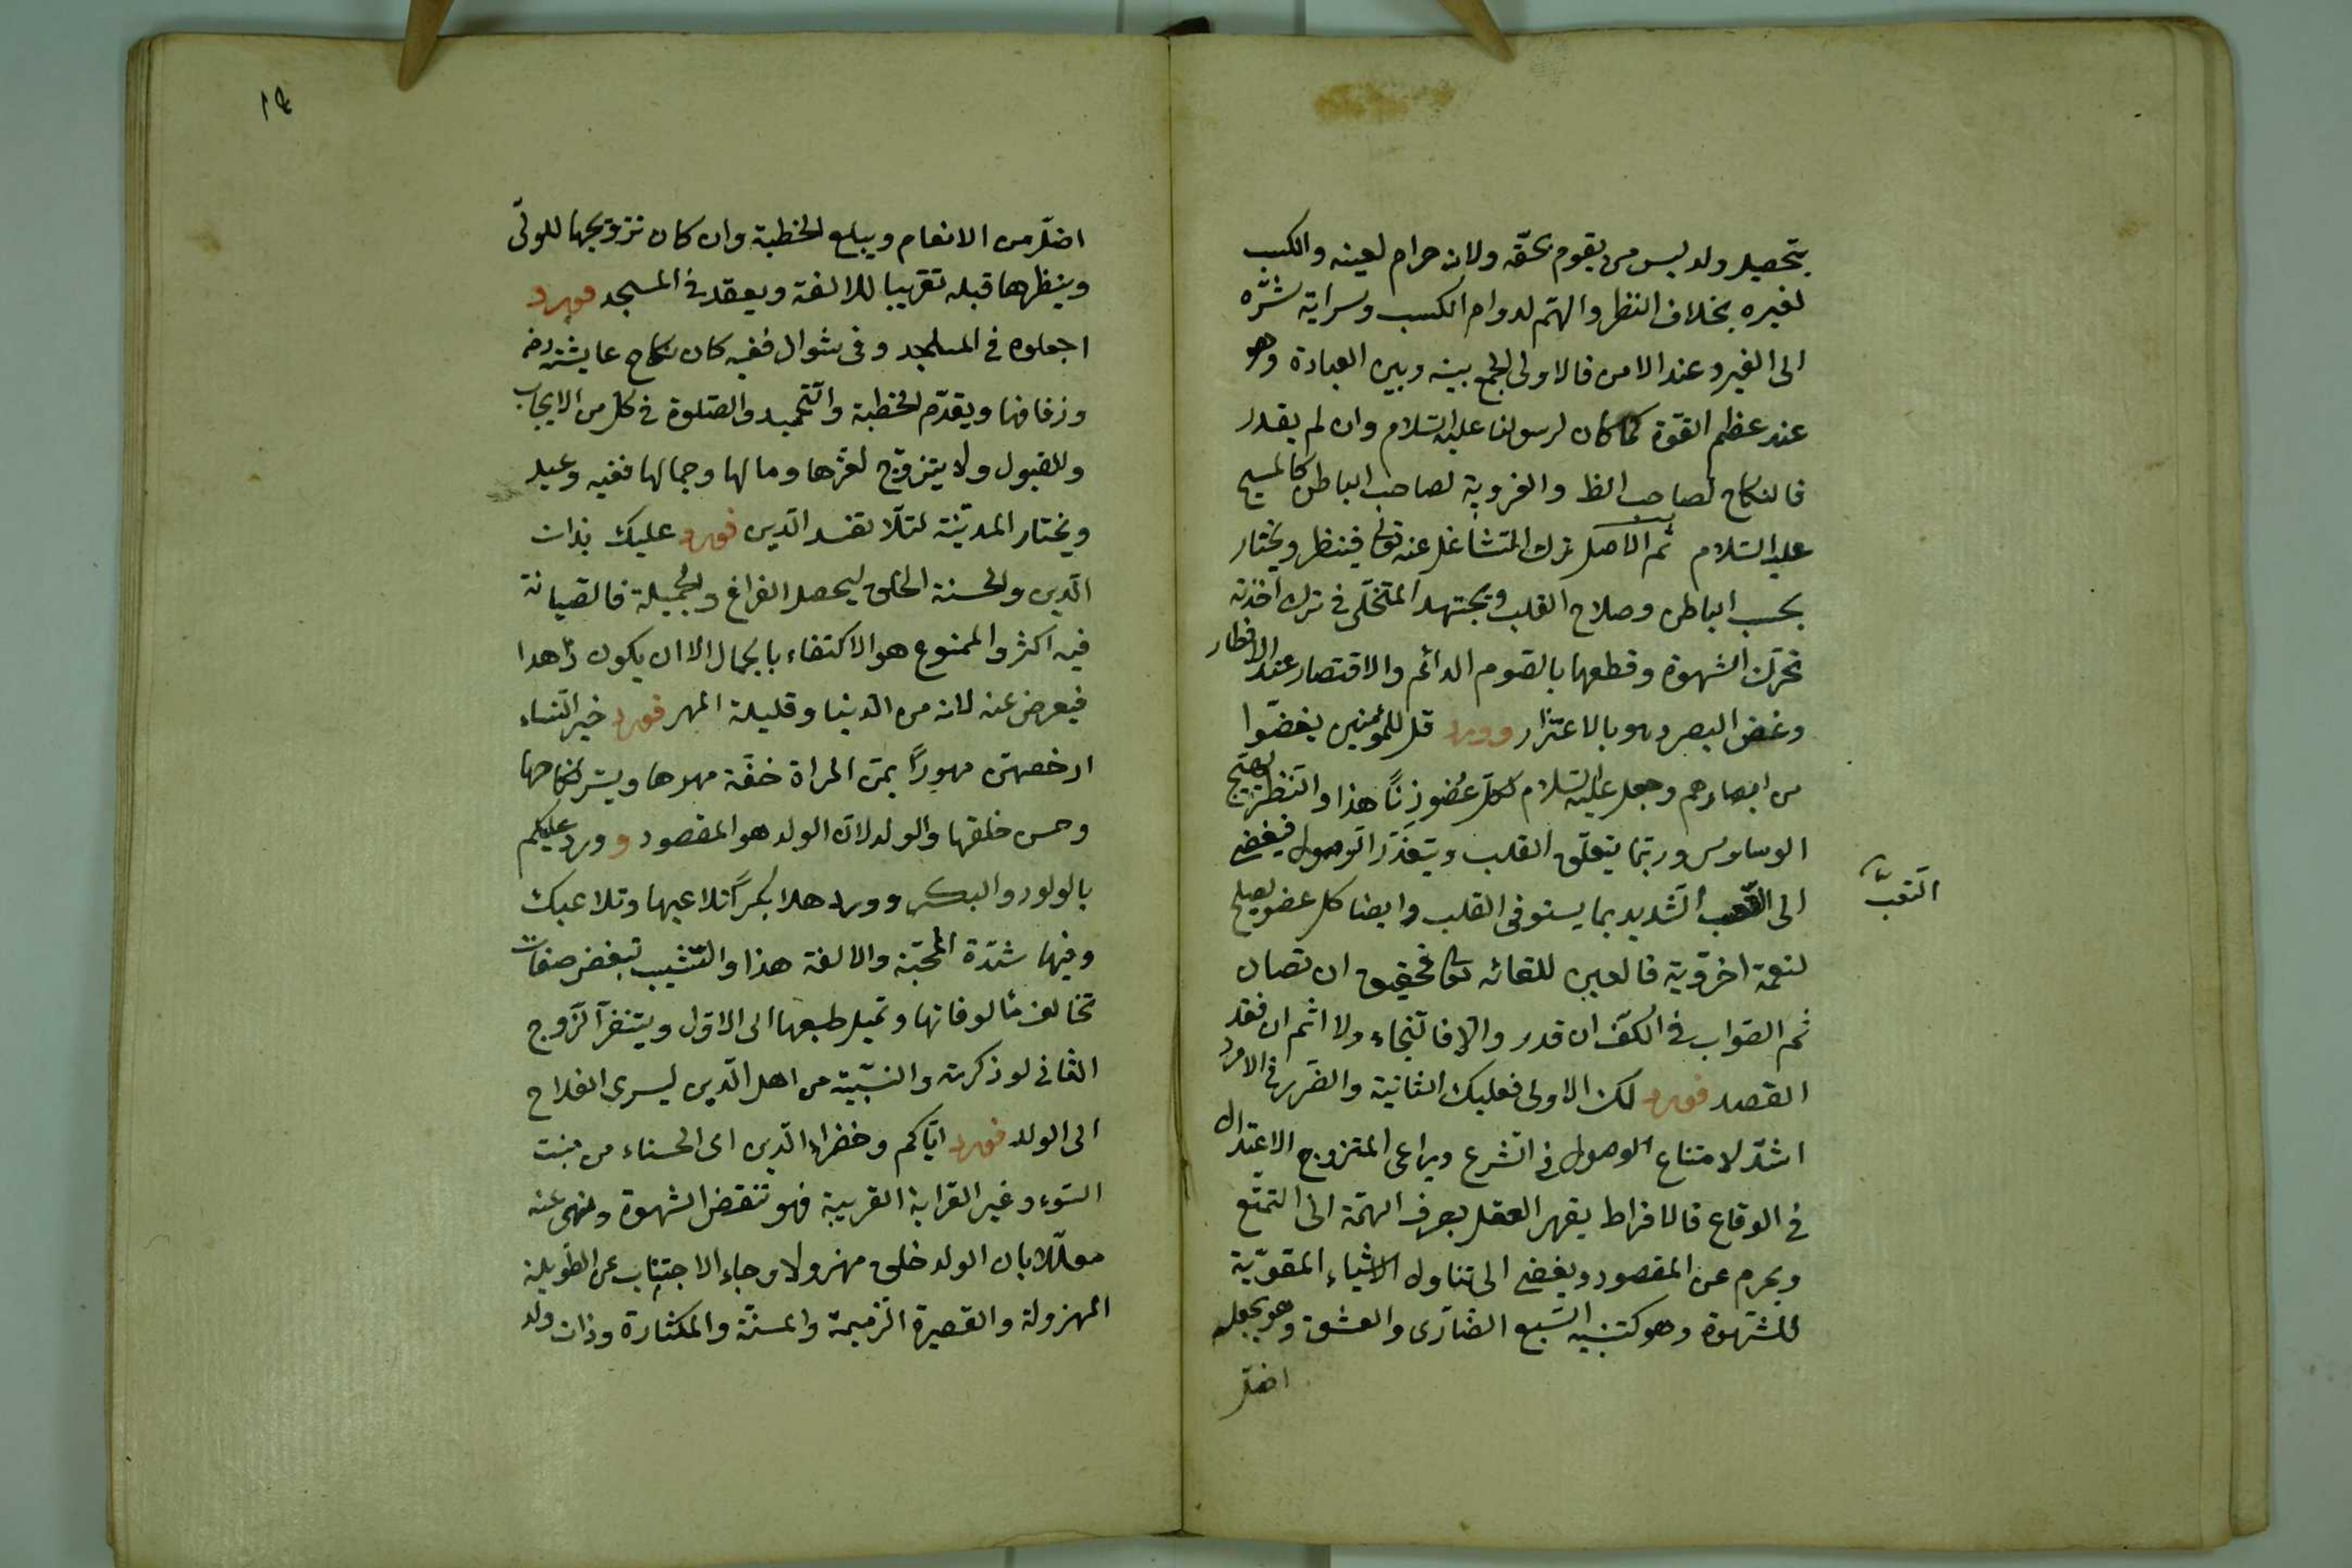 بتحصيل ولد ليس من يقوم بحقه ولانه حرام لعينه والكسب
لغيره بخلاف النظر والهتم لدوام الكسب وسراية شره
الى الغير وعند الامن فالاولى الجمع بينه وبين العبادة وهو
عند عظم القوة كما كان لرسولنا عليه السلام وان لم يقدر
فالنكاح لصاحب الظ والعزوبة لصاحب الباطن كالمسيح
عليه السلام ثم الاصل ترك المتشاغل عنه تعالى فينظر ويختار
بحسب الباطن وصلاح القلب ويجتهد المتخلى في ترك
تحرك الشهوة وقطعها بالصوم الدائم والاقتصار عند الافطار
وغض البصر وهو بالاعتزار وورد قل للمؤمنين يغضوا
من ابصارهم وجعل عليه السلام لكل عضو زنًا هذا والنظر يهيج
الوساوس وربما يتعلق القلب ويتعذر الوصول فيفضى
الى التعب الشديد بما يستوفى القلب وايضا كل عضو يصلح
التعب
لنعمة اخروية فالعين للقائه تعالى فحقيق ان تصان
ثم الصواب في الكف ان قدر والا فالنجاء ولا اثم ان فقد
القصد فورد لك الاولى فعليك الثانية والضرر في الامرد
اشد لامتناع الوصول في الشرع ويراعى المتزوج الاعتدال
في الوقاع فالافراط يقهر العقل بصرف الهمة الى التمتع
ويحرم عن المقصود ويفضى الى تناول الاشياء المقوية
للشهوة وهو كتنبيه السبع الضارى والعشق وهو يجعله
اضل
١٤
اضل من الانعام ويبلغ الخطبة وان كان تزويجها للولى
وينظرها قبله تقريبا للالفة ويعقد في المسجد فورد
اجعلوه في المساجد وفى شوال ففيه كان نكاح عايشة رضه
وزفافها ويقدم الخطبة والتحميد والصلوة في كل من الايجاب
وللقبول ولا يتزوج لعزها ومالها وجمالها ففيه وعيد
ويختار المدينة لئلا تفسد الدين فورد عليك بذات
الدين والحسنة الخلق ليحصل الفراغ والجميلة فالصيانة
فيه اكثر والممنوع هو الاكتفاء بالجمال الا ان يكون زاهدا
فيعرض عنه لانه من الدنيا وقليلة المهر فورد خير النساء
ارخصهن مهورًا يمن المراة خفة مهرها ويسر نكاحها
وحسن خلقها والولد لان الولد هو المقصود وورد عليكم
بالولود والبكر وورد هلا بكرًا تلاعبها وتلاعبك
وفيها شدة المحبة والالفة هذا والثيب تبغض صفات
تخالف مألوفاتها وتميل طبعها الى الاول ويتنفر الزوج
الثانى لو ذكرته والنسيبة من اهل الدين ليسرى الفلاح
الى الولد فورد اياكم وخضراء الدين اى الحسناء من منبت
السوء وغير القرابة القريبة فهو تنقض الشهوة ونهى عنه
معللا بان الولد خلق مهزولا وجاء الاجتناب عن الطويلة
المهزولة والقصيرة الذميمة والمسنة والمكثارة وذات ولد